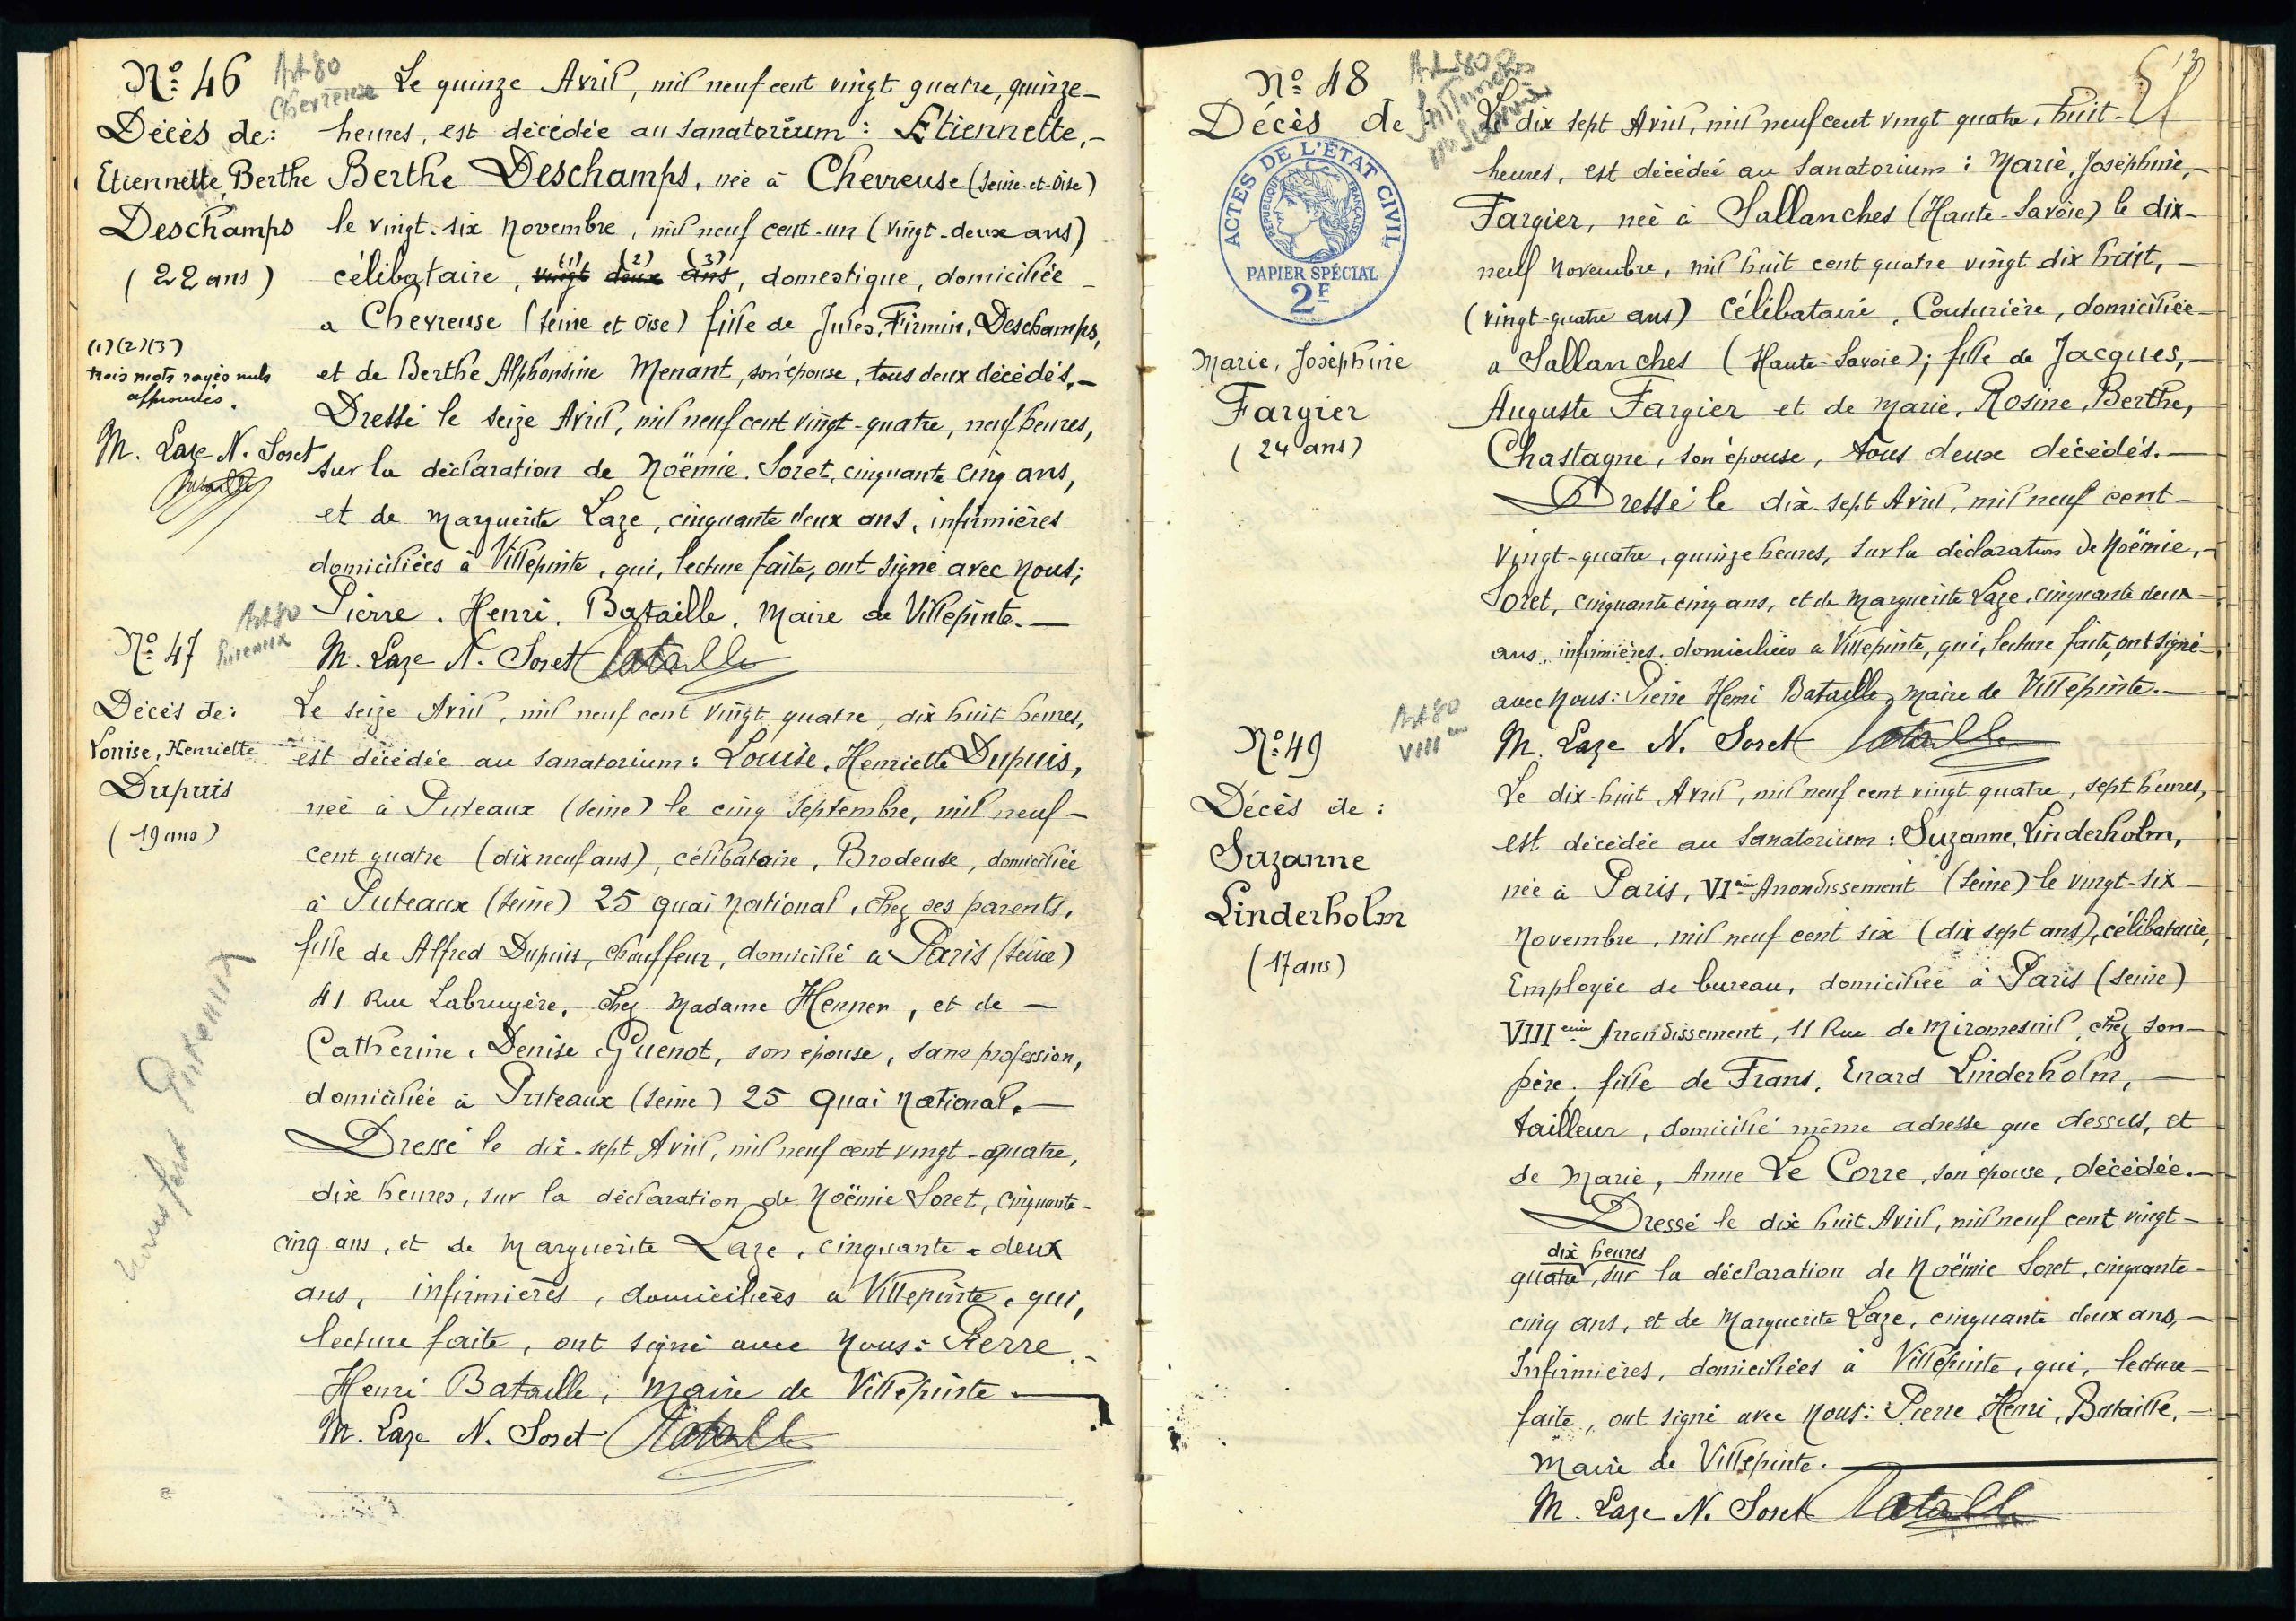 Nº 46
Art 80
Chevreuse
Décès de:
Etiennette, Berthe
Deschamps
(22 ans)
(1)(2)(3)
trois mots rayés nuls
approuvés.
M. Laze N. Soret
Bataille
Le quinze Avril, mil neuf cent vingt quatre, quinze-
heures, est décédée au sanatorium: Etiennette,-
Berthe Deschamps, née à Chevreuse (Seine-et-Oise)
le vingt-six Novembre, mil neuf cent-un (vingt-deux ans)
(1) (2) (3)
célibataire, vingt deux ans, domestique, domiciliée -
a Chevreuse (Seine et Oise) fille de Jules, Firmin, Deschamps,
et de Berthe Alphonsine Menant, son épouse, tous deux décédés,-
Dressé le seize Avril, mil neuf cent vingt-quatre, neuf heures,
sur la déclaration de Noëmie Soret, cinquante cinq ans,
et de Marguerite Laze, cinquante deux ans, infirmières
domiciliées à Villepinte, qui, lecture faite, ont signé avec Nous;
Pierre, Henri, Bataille, Maire de Villepinte.—
M. Laze N. Soret Bataille
Nº 47
Art 80
Puteaux
Décès de:
Louise, Henriette
Dupuis
(19 ans)
transfert Puteaux
Le seize Avril, mil neuf cent vingt quatre, dix huit heures,
est décédée au sanatorium: Louise, Henriette Dupuis,
née à Puteaux (Seine) le cinq Septembre, mil neuf-
cent quatre (dix neuf ans), célibataire, Brodeuse, domiciliée
à Puteaux (Seine) 25 quai National, chez ses parents,
fille de Alfred Dupuis, chauffeur, domicilié à Paris (Seine)
41 Rue Labruyère, chez Madame Henner, et de —
Catherine, Denise Guenot, son épouse, sans profession,
domiciliée à Puteaux (Seine) 25 Quai National.—
Dressé le dix-sept Avril, mil neuf cent vingt-quatre,
dix heures, sur la déclaration de Noëmie Soret, cinquante-
cinq ans, et de Marguerite Laze, cinquante-deux
ans, infirmières, domiciliées à Villepinte, qui,
lecture faite, ont signé avec Nous: Pierre.-
Henri Bataille, Maire de Villepinte.—
M. Laze N. Soret Bataille
Nº 48
Art 80
Décès de
ACTES DE L'ÉTAT CIVIL
RÉPUBLIQUE FRANÇAISE
PAPIER SPÉCIAL
2F
Marie, Joséphine
Fargier
(24 ans)
Le dix sept Avril, mil neuf cent vingt quatre, huit-
heures, est décédée au Sanatorium: Marie, Joséphine,-
Fargier, née à Sallanches (Haute-Savoie) le dix-
neuf Novembre, mil huit cent quatre vingt dix huit, -
(vingt-quatre ans) Célibataire, Couturière, domiciliée-
a Sallanches (Haute-Savoie); fille de Jacques,-
Auguste Fargier et de Marie, Rosine, Berthe,
Chastagne, son épouse, tous deux décédés.—
Dressé le dix-sept Avril, mil neuf cent-
vingt-quatre, quinze heures, sur la déclaration de Noëmie,-
Soret, cinquante cinq ans, et de Marguerite Laze, cinquante deux-
ans, infirmières, domiciliées à Villepinte, qui, lecture faite, ont signé-
avec Nous: Pierre Henri Bataille, Maire de Villepinte.—
M. Laze N. Soret Bataille
Nº 49
Art 80
VIIIem
Décès de:
Suzanne
Linderholm
(17 ans)
Le dix-huit Avril, mil neuf cent vingt quatre, sept heures,
est décédée au Sanatorium: Suzanne, Linderholm,
née à Paris, VIème Arrondissement (Seine) le vingt-six-
Novembre, mil neuf cent six (dix sept ans), célibataire,
Employée de bureau, domiciliée à Paris (Seine)
VIIIème Arrondissement, 11 Rue de Miromesnil, chez son-
père, fille de Frans, Enard Linderholm, —
tailleur, domicilié même adresse que dessus, et
de Marie, Anne Le Corre, son épouse, décédée.—
Dressé le dix huit Avril, mil neuf cent vingt-
dix heures
quatre, sur la déclaration de Noëmie Soret, cinquante-
cinq ans, et de Marguerite Laze, cinquante deux ans,-
Infirmières, domiciliées à Villepinte, qui, lecture-
faite, ont signé avec Nous: Pierre, Henri, Bataille,-
Maire de Villepinte.—
M. Laze N. Soret Bataille